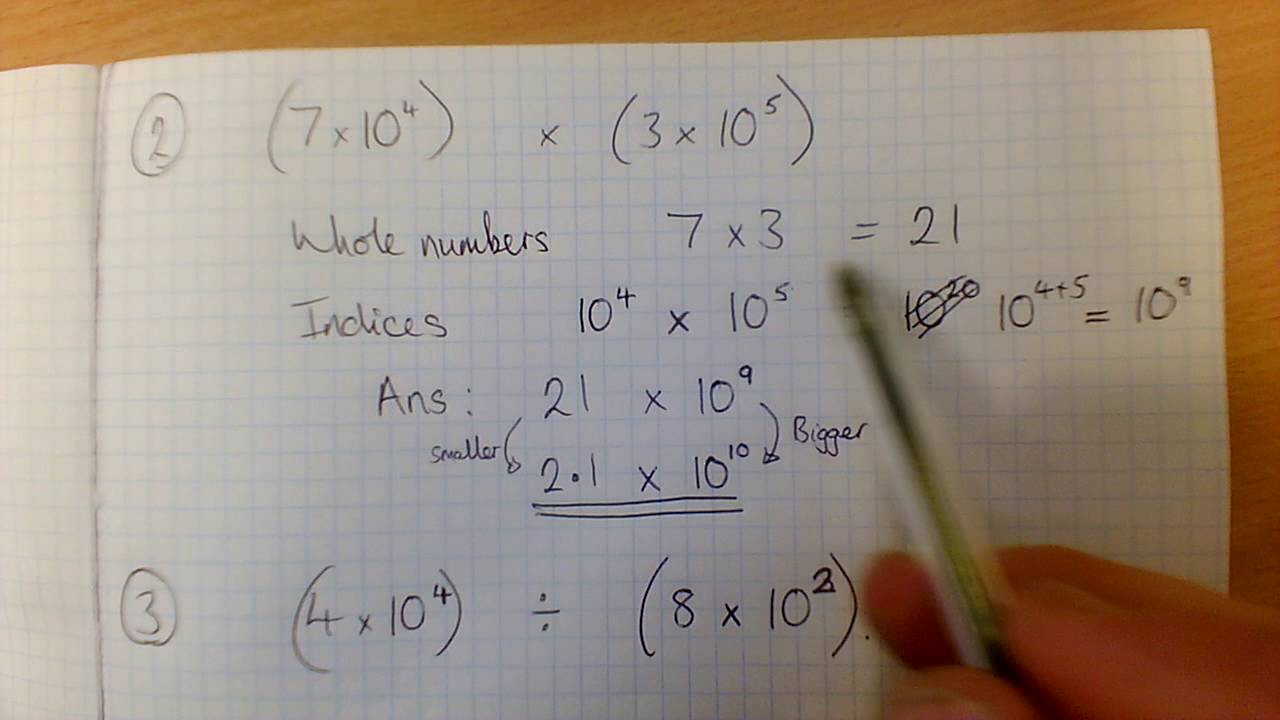 ② (7 × 10⁴) × (3 × 10⁵)
Whole numbers 7 × 3 = 21
Indices 10⁴ × 10⁵ 10²⁰ 10⁴⁺⁵ = 10⁹
Ans : 21 × 10⁹
smaller Bigger
2.1 × 10¹⁰
③ (4 × 10⁴) ÷ (8 × 10²).